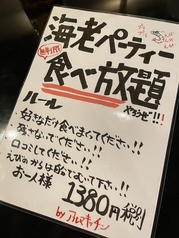 海老パーティー
無制限
食べ放題
やるゾ!!
ルール
・好きなだけ食べまくってください!!
・残さないでください!!
・口コミしてください!!
・えびのからは殻入れに入れて下さい!!
お一人様
1380円(税別)
by アルズキッチン